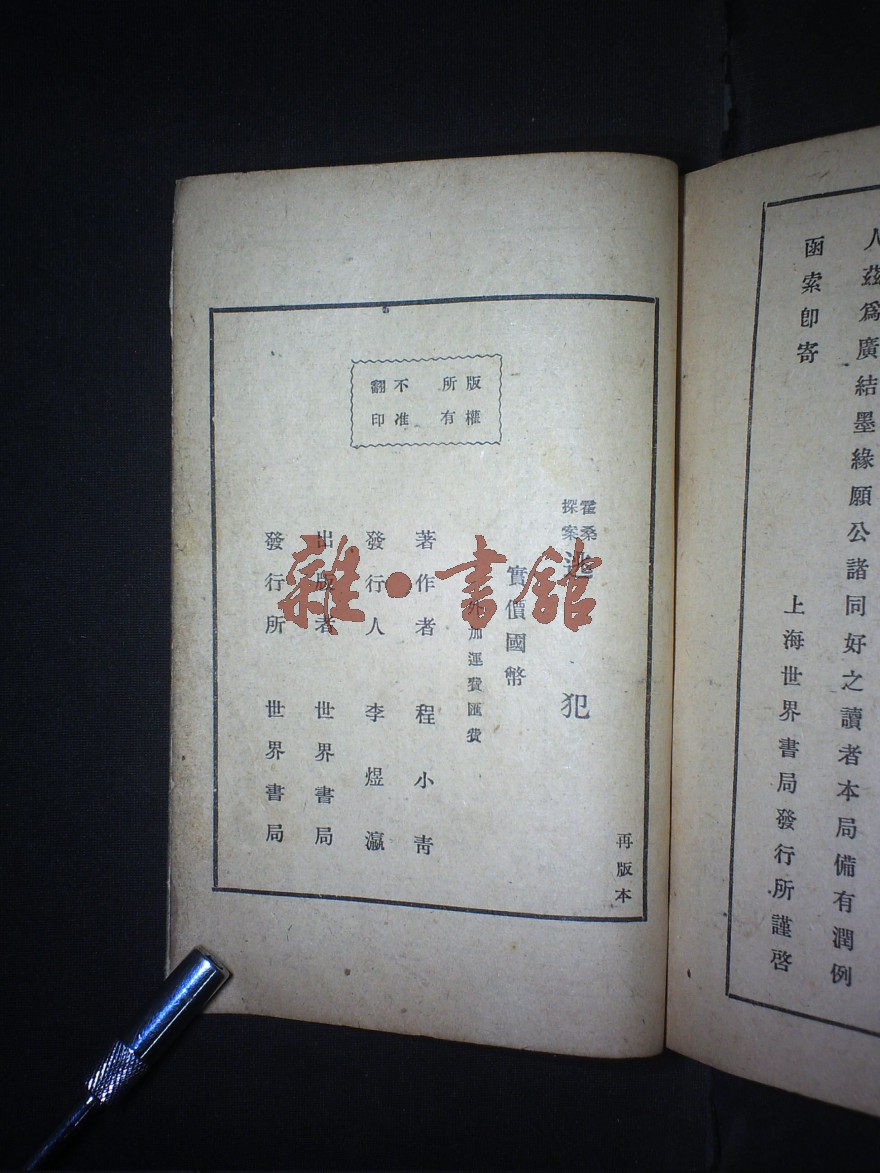 人茲爲廣結墨緣願公諸同好之讀者本局備有潤例
函索卽寄
上海世界書局發行所謹啓
版權
所有
不准
翻印
再版本
霍桑
探案
逃犯
實價國幣
外加運費匯費
著作者 程小青
發行人 李煜瀛
出版者 世界書局
發行所 世界書局
雜·書館